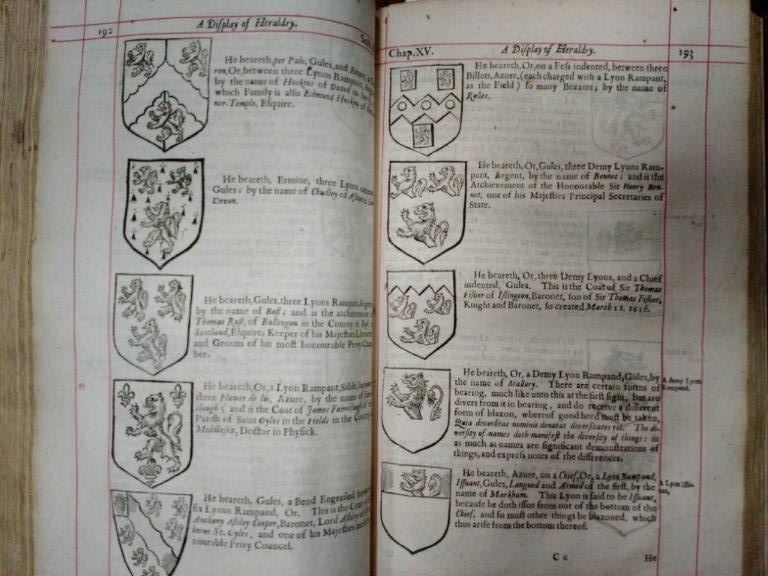 192
A Display of Heraldry.
He beareth, per Pale, Gules, and Azure, a
ron, Or, between three Lyons Rampant,
by the name of Hoskins of Oxted in
which Family is also Edmund Hoskins of the
ner-Temple, Esquire.
He beareth, Ermine, three Lyons
Gules; by the name of Chudley of
Devon.
He beareth, Gules, three Lyons Rampant, Argent
by the name of Ross; and is the atchievement
Thomas Ross, of
Scotland, Esquire; Keeper of his Majesties
and Groom of his most honourable Privy
ber.
He beareth, Or, a Lyon Rampant, Sable, between
three Flower de lis, Azure, by the name of
clough; and is the Coat of James Fairclough of
Parish of Saint Gyles in the Fields in the County
Middlesex, Doctor in Physick.
He beareth, Gules, a Bend Engrailed between
six Lyons Rampand, Or. This is the Coat of
Anthony Ashley Cooper, Baronet, Lord Ashley of
St. Gyles, and one of his Majesties
nourable Privy Councel.
Chap. XV.
A Display of Heraldry.
193
He beareth, Or, on a Fess indented, between three
Billets, Azure, (each charged with a Lyon Rampant,
as the Field) so many Bezants; by the name of
Rolles.
He beareth, Or, Gules, three Demy Lyons Ram-
pant, Argent, by the name of Bennet; and is the
Atchievement of the Honourable Sir Henry Ben-
net, one of his Majesties Principal Secretaries of
State.
He beareth, Or, three Demy Lyons, and a Chief
indented, Gules. This is the Coat of Sir Thomas
Fisher of Islington, Baronet, son of Sir Thomas Fisher,
Knight and Baronet, so created March 12. 1616.
He beareth, Or, a Demy Lyon Rampand, Gules, by
the name of Mallory. There are certain forms of
bearing, much like unto this at the first sight, but are
divers from it in bearing, and do receive a different
form of blazon, whereof good heed must be taken,
Quia diversitas nominis denotat diversitates rei. The di-
versity of names doth manifest the diversity of things: in
as much as names are significant demonstrations of
things, and express notes of the differences.
A demy Lyon
Rampand.
He beareth, Azure, on a Chief, Or, a Lyon Rampand,
Issuant, Gules, Langued and Armed of the first, by the
name of Markham. This Lyon is said to be Issuant,
because he doth issue from out of the bottom of the
Chief, and so must other things be blazoned, which
thus arise from the bottom thereof.
A Lyon Issu-
ant.
C c
He